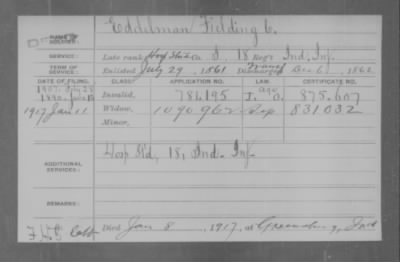 Eddelman, Fielding C.
NAME OF SOLDIER:
Late rank, Hosp Std, Co. , 18 Reg't Ind. Inf.
TERM OF SERVICE:
Enlisted July 29, 1861 Discharged Dec 6, 1862
DATE OF FILING. CLASS. APPLICATION NO. LAW. CERTIFICATE NO.
Invalid, 786,195 875,607
1917 Jan 11 Widow, 1090962 831032
Minor,
ADDITIONAL SERVICES:
Hosp Std, 18, Ind. Inf
REMARKS:
Died Jan 8, 1917, at Greensburg, Ind